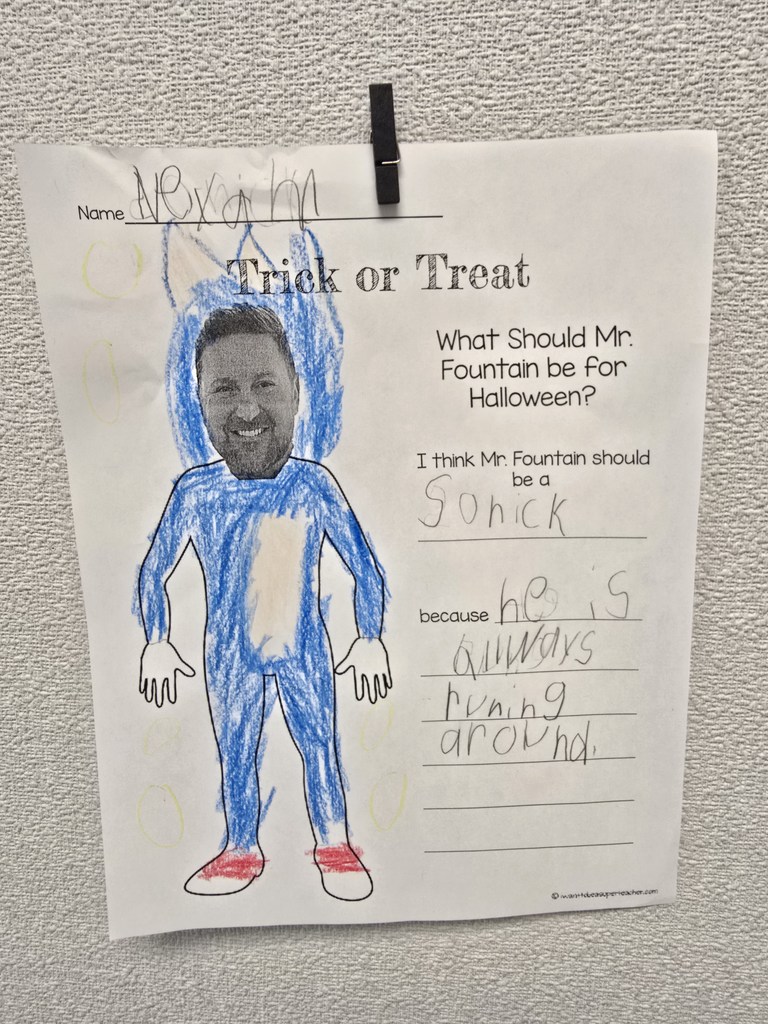 Name
Trick or Treat
What Should Mr.
Fountain be for
Halloween?
I think Mr. Fountain should
be a
Sonick
because he is
allways
runing
around.
© iwanttobeasuperteacher.com